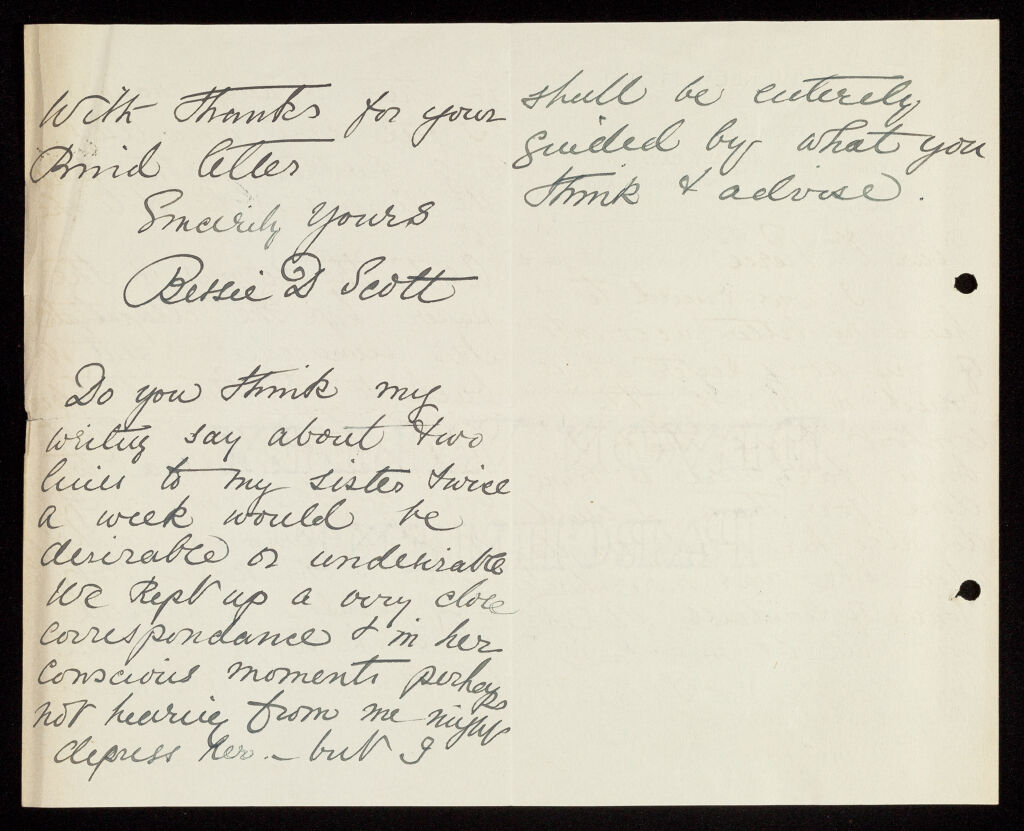 With thanks for your
kind letter
Sincerely yours
Bessie D Scott
Do you think my
writing say about two
lines to my sister twice
a week would be
desirable or undesirable
We kept up a very close
correspondance & in her
conscious moments perhaps
not hearing from me might
depress her. – but I
shall be entirely
guided by what you
think & advise.